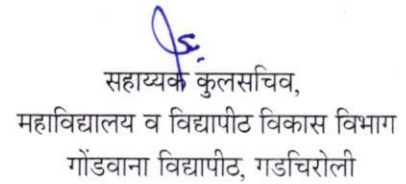 सहाय्यक कुलसचिव,
महाविद्यालय व विद्यापीठ विकास विभाग
गोंडवाना विद्यापीठ, गडचिरोली